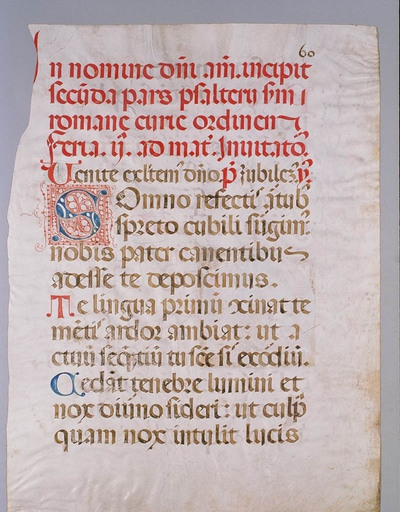 60
n nomine dñi am̃. incipit
secũda pars psalterij s̃m
romane curie ordinem
feria. ij. ad mat̃. Inuitato
Uenite exltem dño. p̃ iubilem
Somno refectis artub
spreto cubili surgim
nobis pater canentibus
adesse te deposcimus.
Te lingua primũ concinat te
mẽtis ardor ambiat: ut a
ctuũ sequẽtiũ tu sc̃e sis exordiũ.
Cedãt tenebre lumini et
nox diurno sideri: ut culp
quam nox intulit lucis